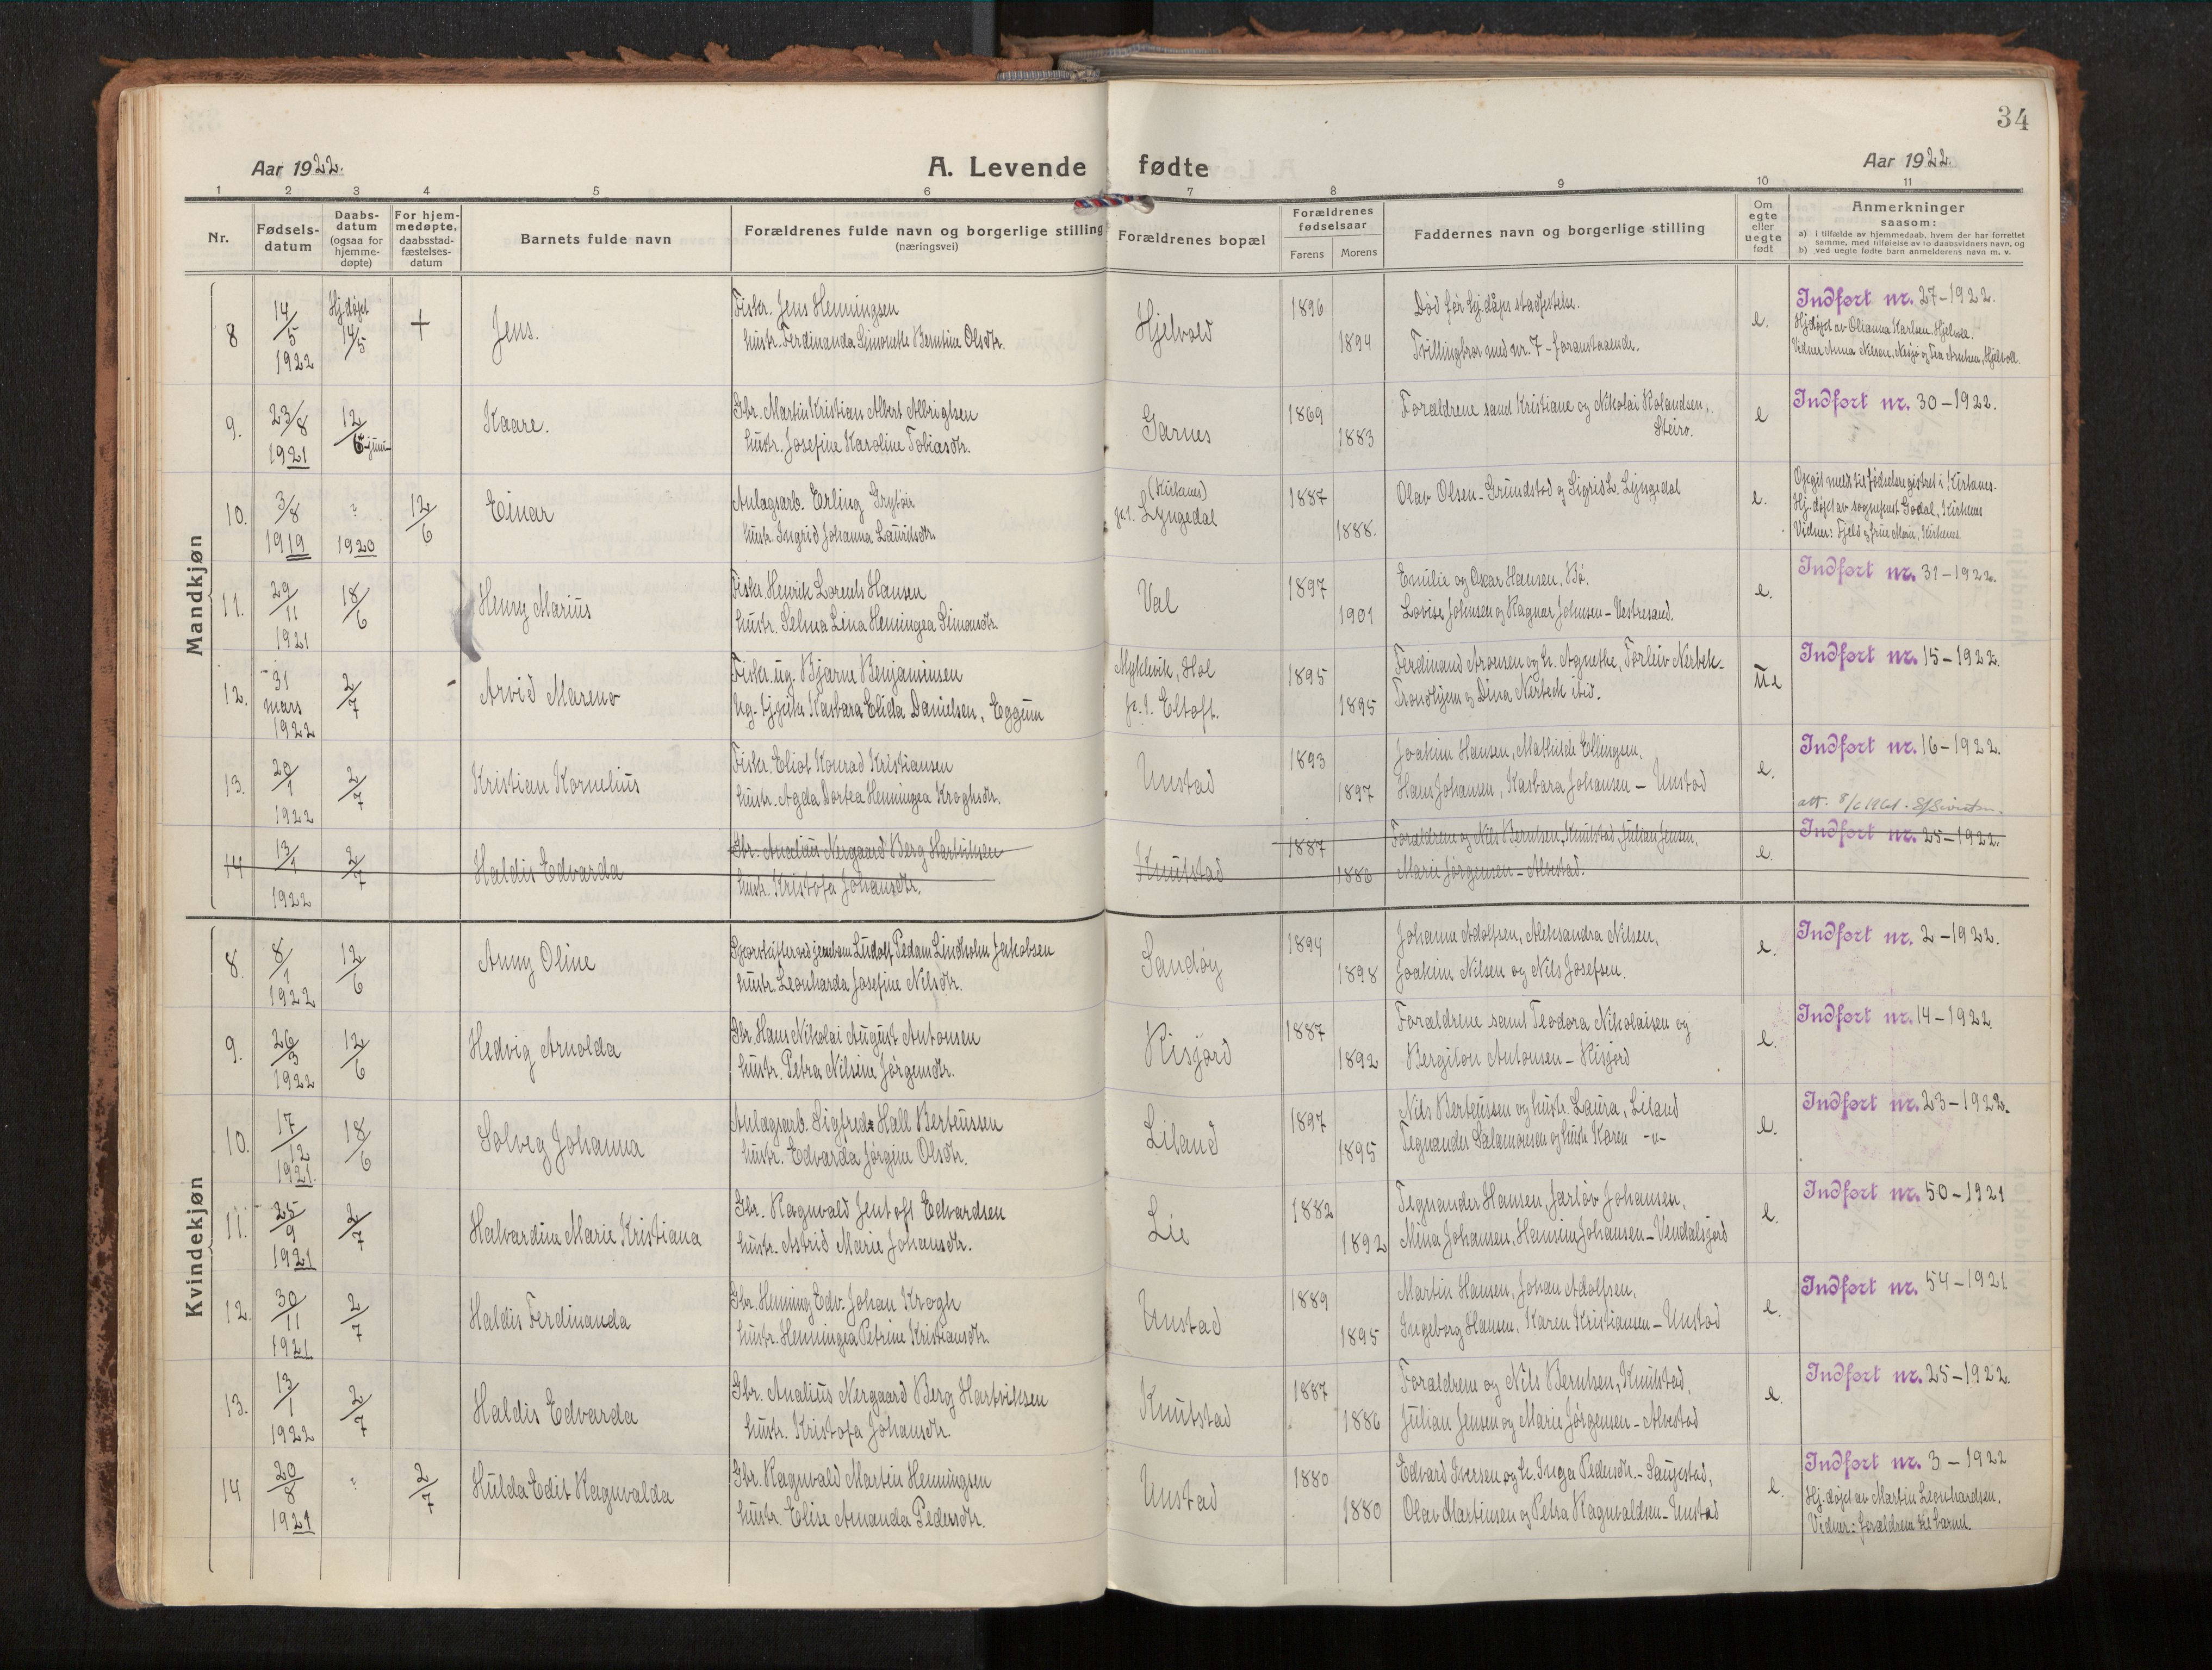 34
Aar 1922.
A. Levende fødte
Aar 1922.
1 2 3 4 5 6 7 8 9 10 11
Nr.
Fødsels-
datum
Daabs-
datum
(ogsaa for
hjemme-
døpte)
For hjem-
medøpte,
daabsstad-
fæstelses-
datum
Barnets fulde navn
Forældrenes fulde navn og borgerlige stilling
(næringsvei)
Forældrenes bopæl
Forældrenes
fødselsaar
Farens
Morens
Faddernes navn og borgerlige stilling
Om
egte
eller
uegte
født
Anmerkninger
saasom:
a) i tilfælde av hjemmedaab, hvem der har forrettet
samme, med tilføielse av to daabsvidners navn, og
b) ved uegte fødte barn anmelderens navn m. v.
Mandkjøn
8 14/5 1922 Hj.døpt 14/5 + Jens.
Fisker. Jens Henningsen
hustr. Ferdinanda Simonette Berntine Olsdtr.
Hjelvold 1896 1894
Død før hj.dåps stadfestelse.
Tvillingbror med nr. 7 - foranstaaende.
e.
Indført nr. 27-1922.
Hj.døpt av Olianna Karlsen. Hjelvoll.
Vidner Anna Nilsen,
9. 23/8 1921 12/6 juni Kaare.
Gbr. Martin Kristian Albert Albrigtsen
hustr. Josefine Karoline Tobiasdtr.
Garnes 1869 1883
Forældrene samt Kristiane og Nikolai Rolandsen,
Steiro.
e
Indført nr. 30-1922.
10. 3/8 1919 " 1920 12/6 Einar
Anlagsarb. Erling Grytør
hustr. Ingrid Johanna Lauritsdtr.
(Kirkenes)
p.t. Lyngedal 1887 1888.
Olav Olsen - Grundstad og Sigrid L. Lyngedal
e.
Opgit meldt til fødselsregistret i Kirkenes.
Hj.døpt av sogneprest Godal, Kirkenes
Vidner: Fjeld og frue Moen, Kirkenes.
11. 29/11 1921 18/6 Henry Marius
Fisker. Henrik Lorents Hansen
hustr. Selma Lina Hemingea Simonsdtr.
Val 1897 1901
Emilie og Oscar Hansen, Bø.
Lovise Johnsen og Ragnar Johnsen - Vestresand.
e.
Indført nr. 31-1922.
12. 31 mars 1922 2/7 Arvid Mareno
Fisker. ug. Bjarne Benjaminsen
Ug. tj.gjente Karbara Elida Danielsen, Eggum
Myklevik, Hol
p.t. Eltoft. 1895 1895
Ferdinand Aronsen og h. Agnethe, Torleiv Nerbek-
Trondhjem og Dina Nerbeck ibid.
ue
Indført nr. 15-1922.
13. 20/1 1922 2/7 Kristian Kornelius
Fisker. Eliot Konrad Kristiansen
hustr. Agda Dortea Henningea Kroghsdtr.
Unstad 1893 1897
Joakim Hansen, Mathilde Ellingsen,
Hans Johansen, Karbara Johansen - Unstad
e.
Indført nr. 16-1922.
att. 8/6 1961.
14 13/1 1922 2/7 Haldis Edvarda
Gbr. Analius Nergaard Berg Hartviksen
hustr. Kristofa Johansdtr.
Knutstad 1887 1886
Forældrene og Nils Berntsen, Knutstad, Julian Jensen,
Marie Jørgensen - Alvestad.
e.
Indført nr. 25-1922.
Kvindekjøn
8. 8/1 1922 12/6 Anny Oline
Sporskifter ved jernbanen Ludolf Pedam Lindholm Jakobsen
hustr. Leonharda Josefine Nilsdtr.
Sandøy 1894 1898
Johanna Adolfsen, Aleksandra Nilsen,
Joakim Nilsen og Nils Josefsen.
e.
Indført nr. 2-1922.
9. 26/3 1922 12/6 Hedvig Arnolda
Gbr. Hans Nikolai August Antonsen
hustr. Petra Nilsine Jørgensdtr.
Risjord 1887 1892
Forældrene samt Teodora Nikolaisen og
Bergiton Antonsen - Risjord
e.
Indført nr. 14-1922.
10. 17/12 1921. 18/6 Solveg Johanna
Anlægsarb. Sigfred Hall Berteussen
hustr. Edvarda Jørgine Olsdtr.
Liland 1897 1895
Nils Berteussen og hustr. Laura, Liland
Tegnander Salamonsen og hustr. Karen -"-
e.
Indført nr. 23-1922.
11. 25/9 1921 2/7 Halvardine Marie Kristiana
Gbr. Ragnvald Jentoft Edvardsen
hustr. Astrid Marie Johansdtr.
Lie 1882 1892
Tegnander Hansen, Jærløv Johansen,
Mina Johansen, Hansine Johansen - Vendalsjord
e.
Indført nr. 50-1921
12. 30/11 1921 2/7 Haldis Ferdinanda
Gbr. Henning Edv. Johan Krogh
hustr. Henningea Petrine Kristiansdtr.
Unstad 1889 1895
Martin Hansen, Johan Adolfsen,
Ingeborg Hansen, Karen Kristiansen - Unstad
e.
Indført nr. 54-1921
13. 13/1 1922 2/7 Haldis Edvarda
Gbr. Analius Nergaard Berg Hartviksen
hustr. Kristofa Johansdtr.
Knutstad 1887 1886
Forældrene og Nils Berntsen, Knutstad,
Julian Jensen og Marie Jørgensen - Alvestad
e.
Indført nr. 25-1922.
14 20/8 1921 " 2/7 Hulda Edit Ragnvalda
Gbr. Ragnvald Martin Henningsen
hustr. Elise Amanda Pedersdtr.
Unstad 1880 1880
Edvard Iversen og h. Inga Pedersdtr. - Saupestad,
Olav Martinsen og Petra Ragnvaldsen - Unstad
e.
Indført nr. 3-1922
Hj.døpt av Martin Leonhardsen.
Vidner: forældrene til barnet.